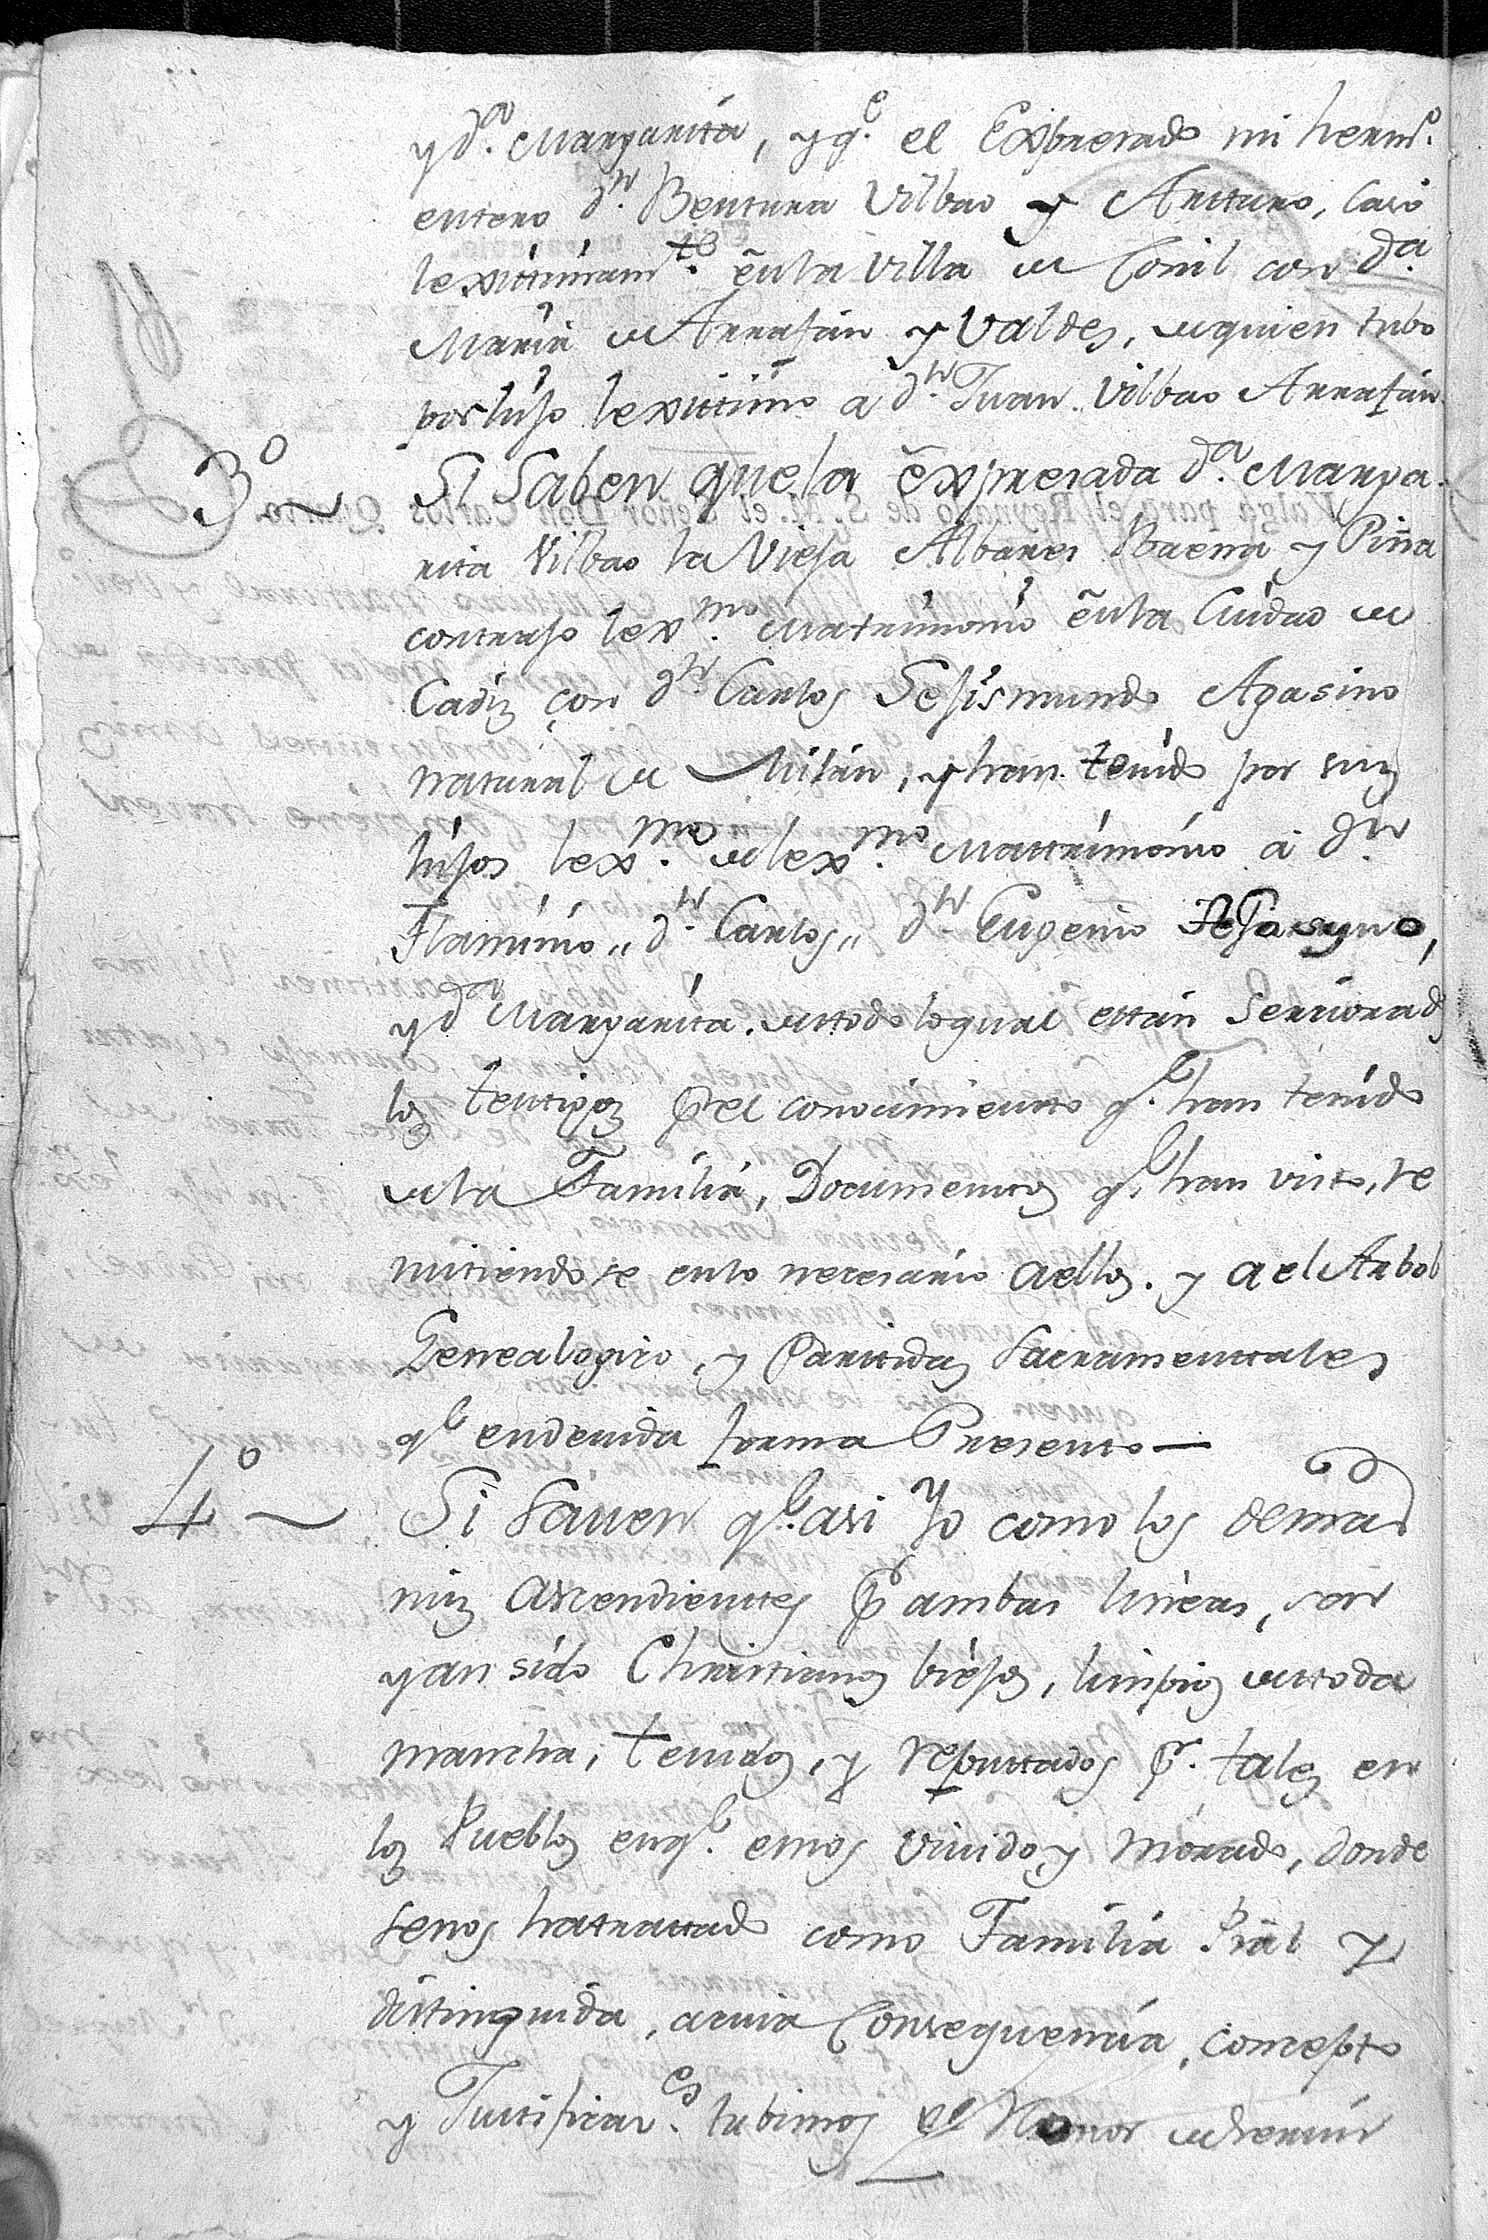 y d.ª Margarita, y q.e el Expresado mi herm.o
entero d.n Bentura Vilbao y Artturo, Caso
lexittimam.te en la Villa de Conil con d.ª
Maria de Arrafán y Valdes, de quien tubo
por hijo lexittimo a d.n Juan Vilbao Arrafán
3º Si Saben que la expresada d.ª Marga-
rita Vilbao la Vieja Albares Baena y Piña
contrajo lex.mo Matrimonio en la Ciudad de
Cadiz con d.n Carlos Sejismundo Agasino
natural de Milán, y han tenido por sus
hijos lex.mos de lex.mo Mattrimonio a d.n
Flaminio,, d.n Carlos,, d.n Eugenio
y d.ª Margarita. de ttodo lo qual esttán Serciorad.s
los testigos p.r el conocimientto q.e han tenido
de la Familia, Documenttos q.e han visto, re
mitiendose en lo necesario a ellos. y a el Arbol
Genealogico, y Parttidas Sacramenttales
q.e en devida forma Presento—
4º Si Saven q.e asi Yo como los demas
mis Ascendienttes p.r ambas lineas, son
y an sido Christtianos biejos, limpios de ttoda
mancha, tenidos, y reputtados p.r tales en
los Pueblos en q.e emos vivido y morado, donde
se nos ha trattado como Familia Pral y
disttinguida, a cuia Consequencia, concepto
y Justtificac.es tubimos el Honor de servir